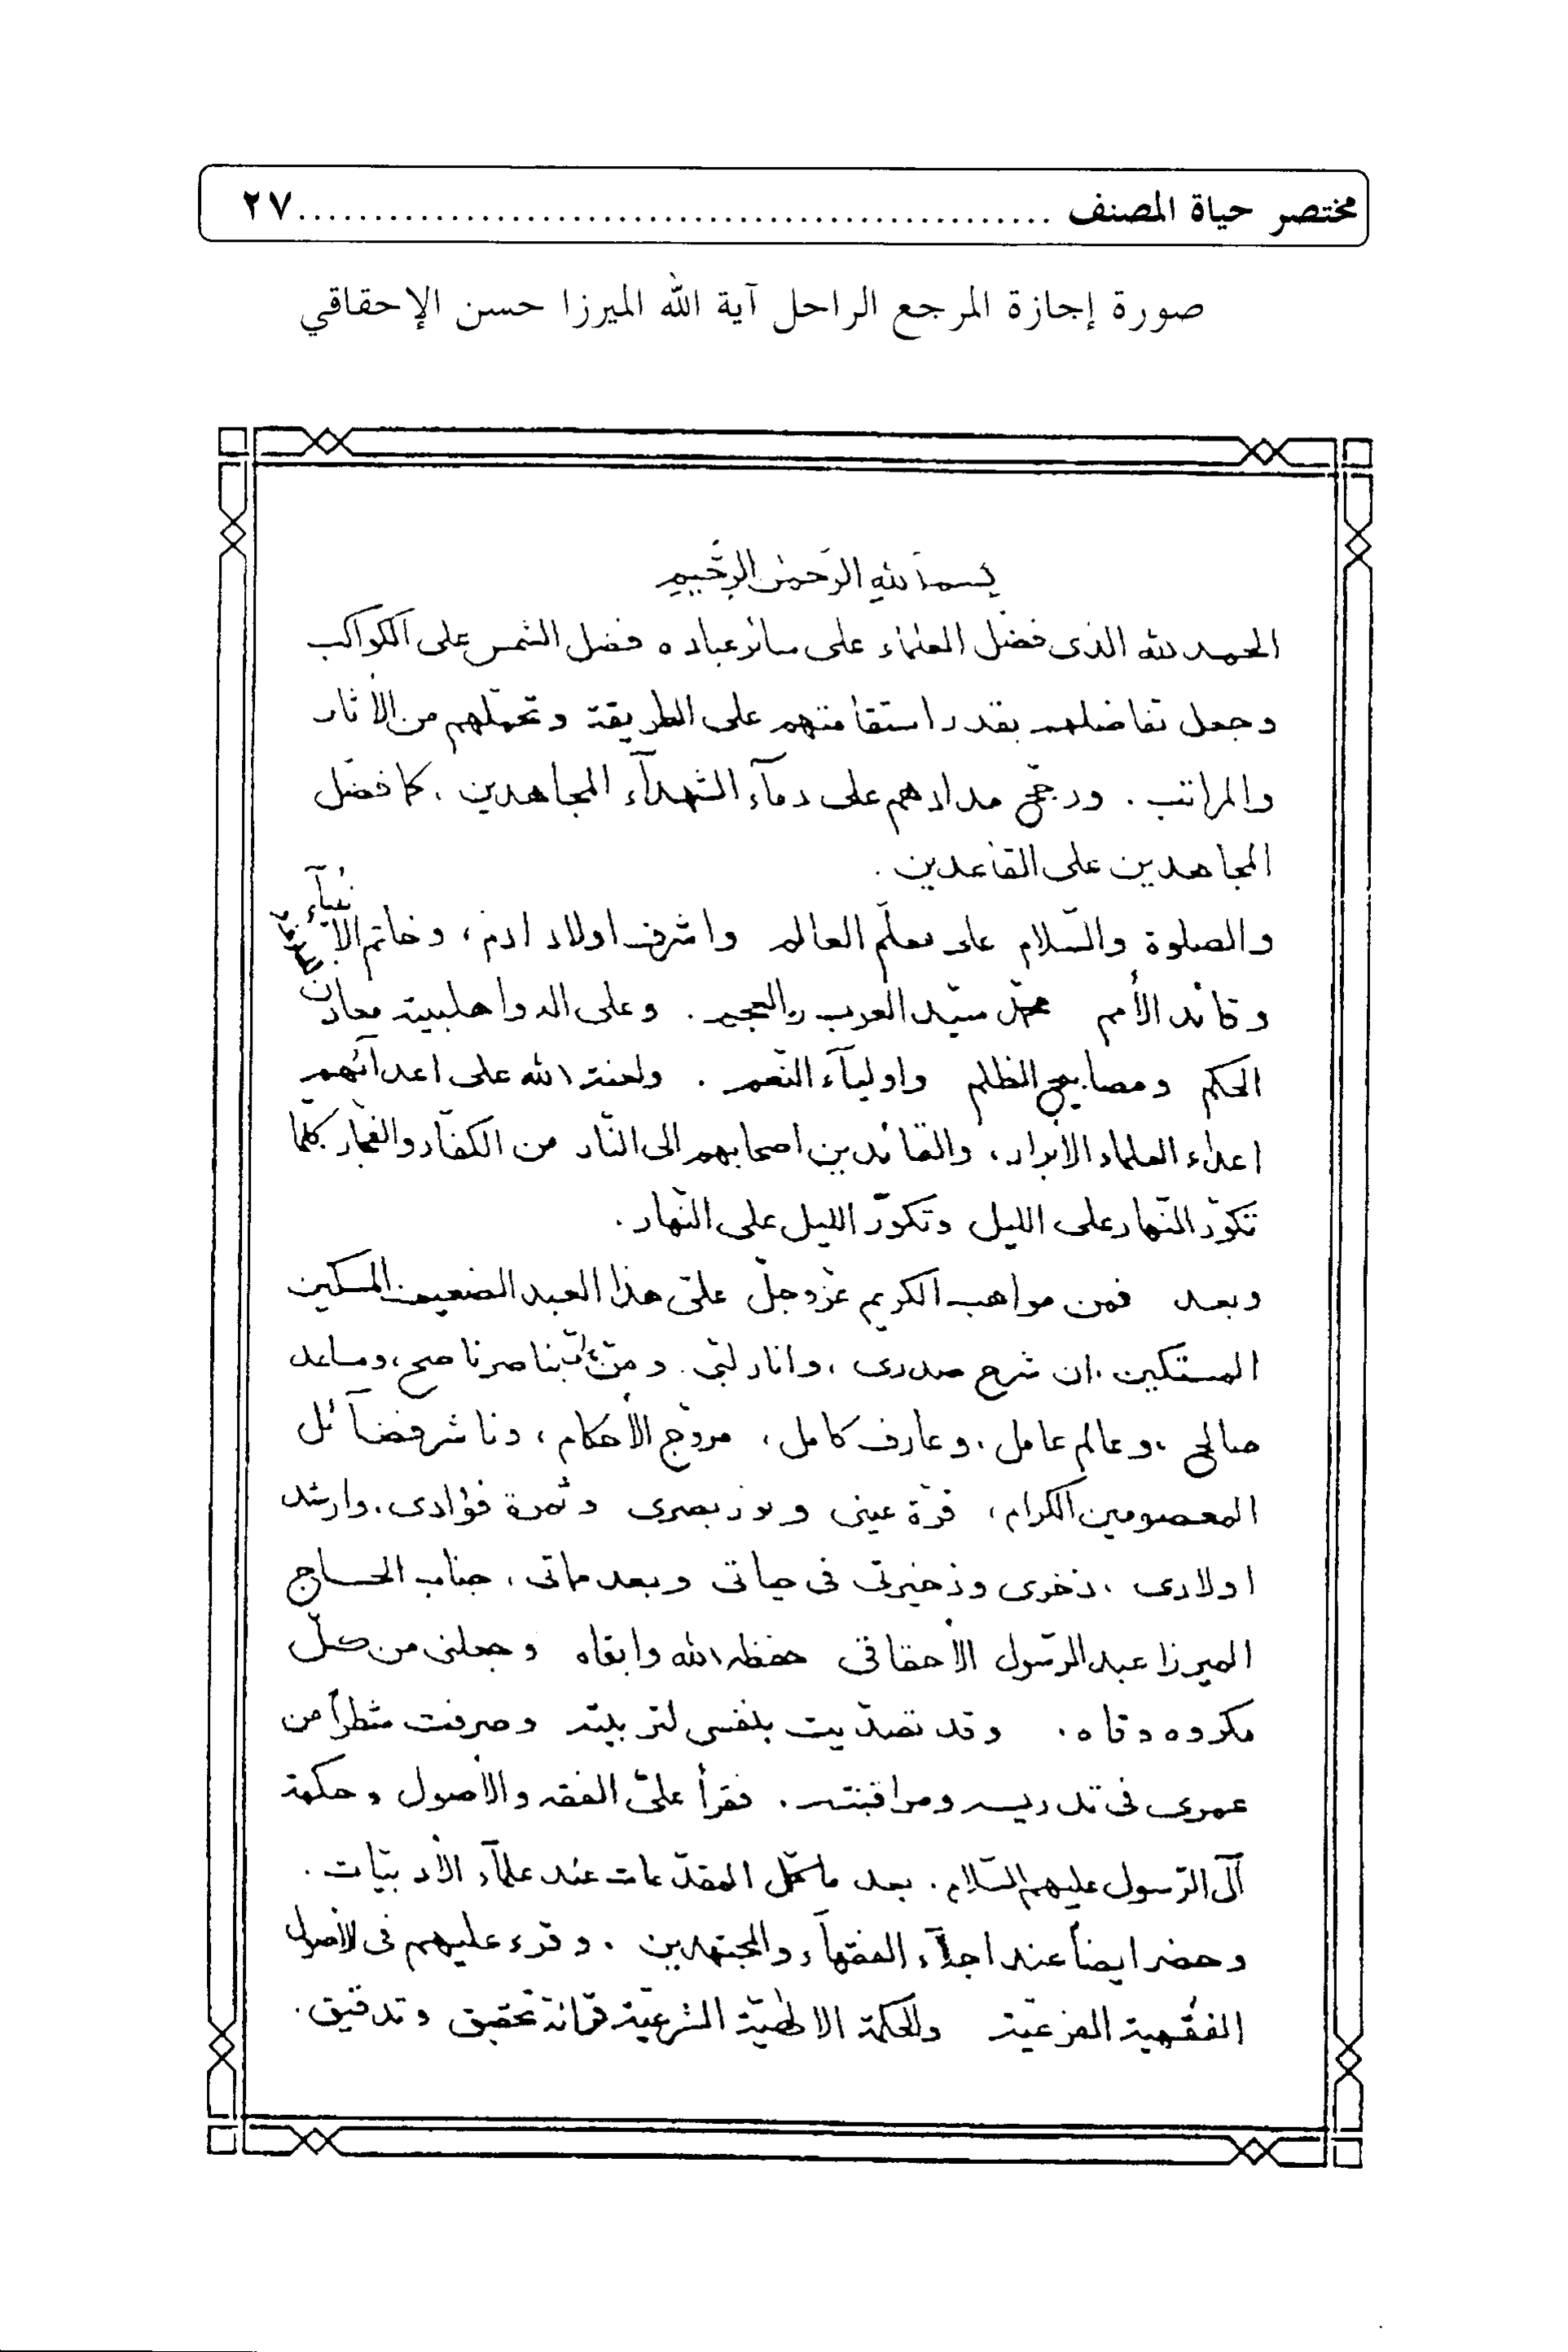 مختصر حياة المصنف .................................................. ٢٧
صورة إجازة المرجع الراحل آية الله الميرزا حسن الإحقاقي
بسم الله الرحمن الرحيم
الحمد لله الذى فضل العلماء على سائر عباده فضل الشمس على الكواكب
وجعل تفاضلهم بقدر استقامتهم على الطريقة وتحملهم من الأثار
والمراتب . ورجّح مدادهم على دمآء الشهدآء المجاهدين ، كما فضّل
المجاهدين على القاعدين .
والصلوة والسّلام على معلّم العالم واشرف اولاد ادم ، وخاتم الانبيآء
وقائد الأمم محمّد سيّد العرب والعجم . وعلى اله واهلبيته معادن
الحكم ومصابيح الظلم واوليآء النّعم . ولعنة الله على اعدآئهم
اعداء العلماء الأبرار ، والقائدين اصحابهم الى النّار من الكفّار والفجّار كلما
تكوّر النّهار على الليل وتكوّر الليل على النّهار .
وبعد فمن مواهب الكريم عزّ وجلّ علىّ هذا العبد الضعيف المسكين
المستكين ، ان شرح صدرى ، وانار لبّى . ومنّ بناصر ناصح ، ومساعد
صالح ، وعالم عامل ، وعارف كامل ، مروّج الأحكام ، وناشر فضآئل
المعصومين الكرام ، قرّة عينى ونور بصرى وثمرة فؤادى ، وارشد
اولادى ، ذخرى وذخيرتى فى حياتى وبعد مماتى ، جناب الحساج
الميرزا عبد الرّسول الأحقاقى حفظه الله وابقاه وجعلنى من كلّ
مكروه وقاه . وقد تصدّيت بنفسى لتربيته وصرفت شطراً من
عمرى فى تدريسه ومراقبته . فقرأ علىّ الفقه والأصول وحكمة
آل الرّسول عليهم السّلام . بعد ما كمّل المقدّمات عند علمآء الأدبيّات .
وحضر ايضاً عند اجلّآء الفقهآء والمجتهدين . وقرء عليهم فى الأصول
الفقهية الفرعيّة والحكمة الالهيّة الشرعيّة قرائة تحقيق وتدقيق .